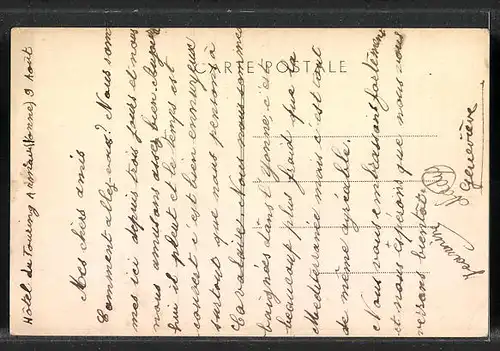 Hôtel du Touring Avallon (Yonne) 9 Août
Mes chers amis
Comment allez vous? Nous som
mes ici depuis trois jours et nous
nous amusons assez bien. Aujour
hui il pleut et le temps est
couvert c'est bien ennuyeux
surtout que nous pensons à
Cavalaire. Nous nous sommes
baignées dans l'Yonne, c'est
beaucoup plus froid que la
Méditerranée mais c'est tout
de même agréable.
Nous vous embrassons fortement
et nous espérons que nous nous
verrons bientôt
Geneviève
CARTE POSTALE